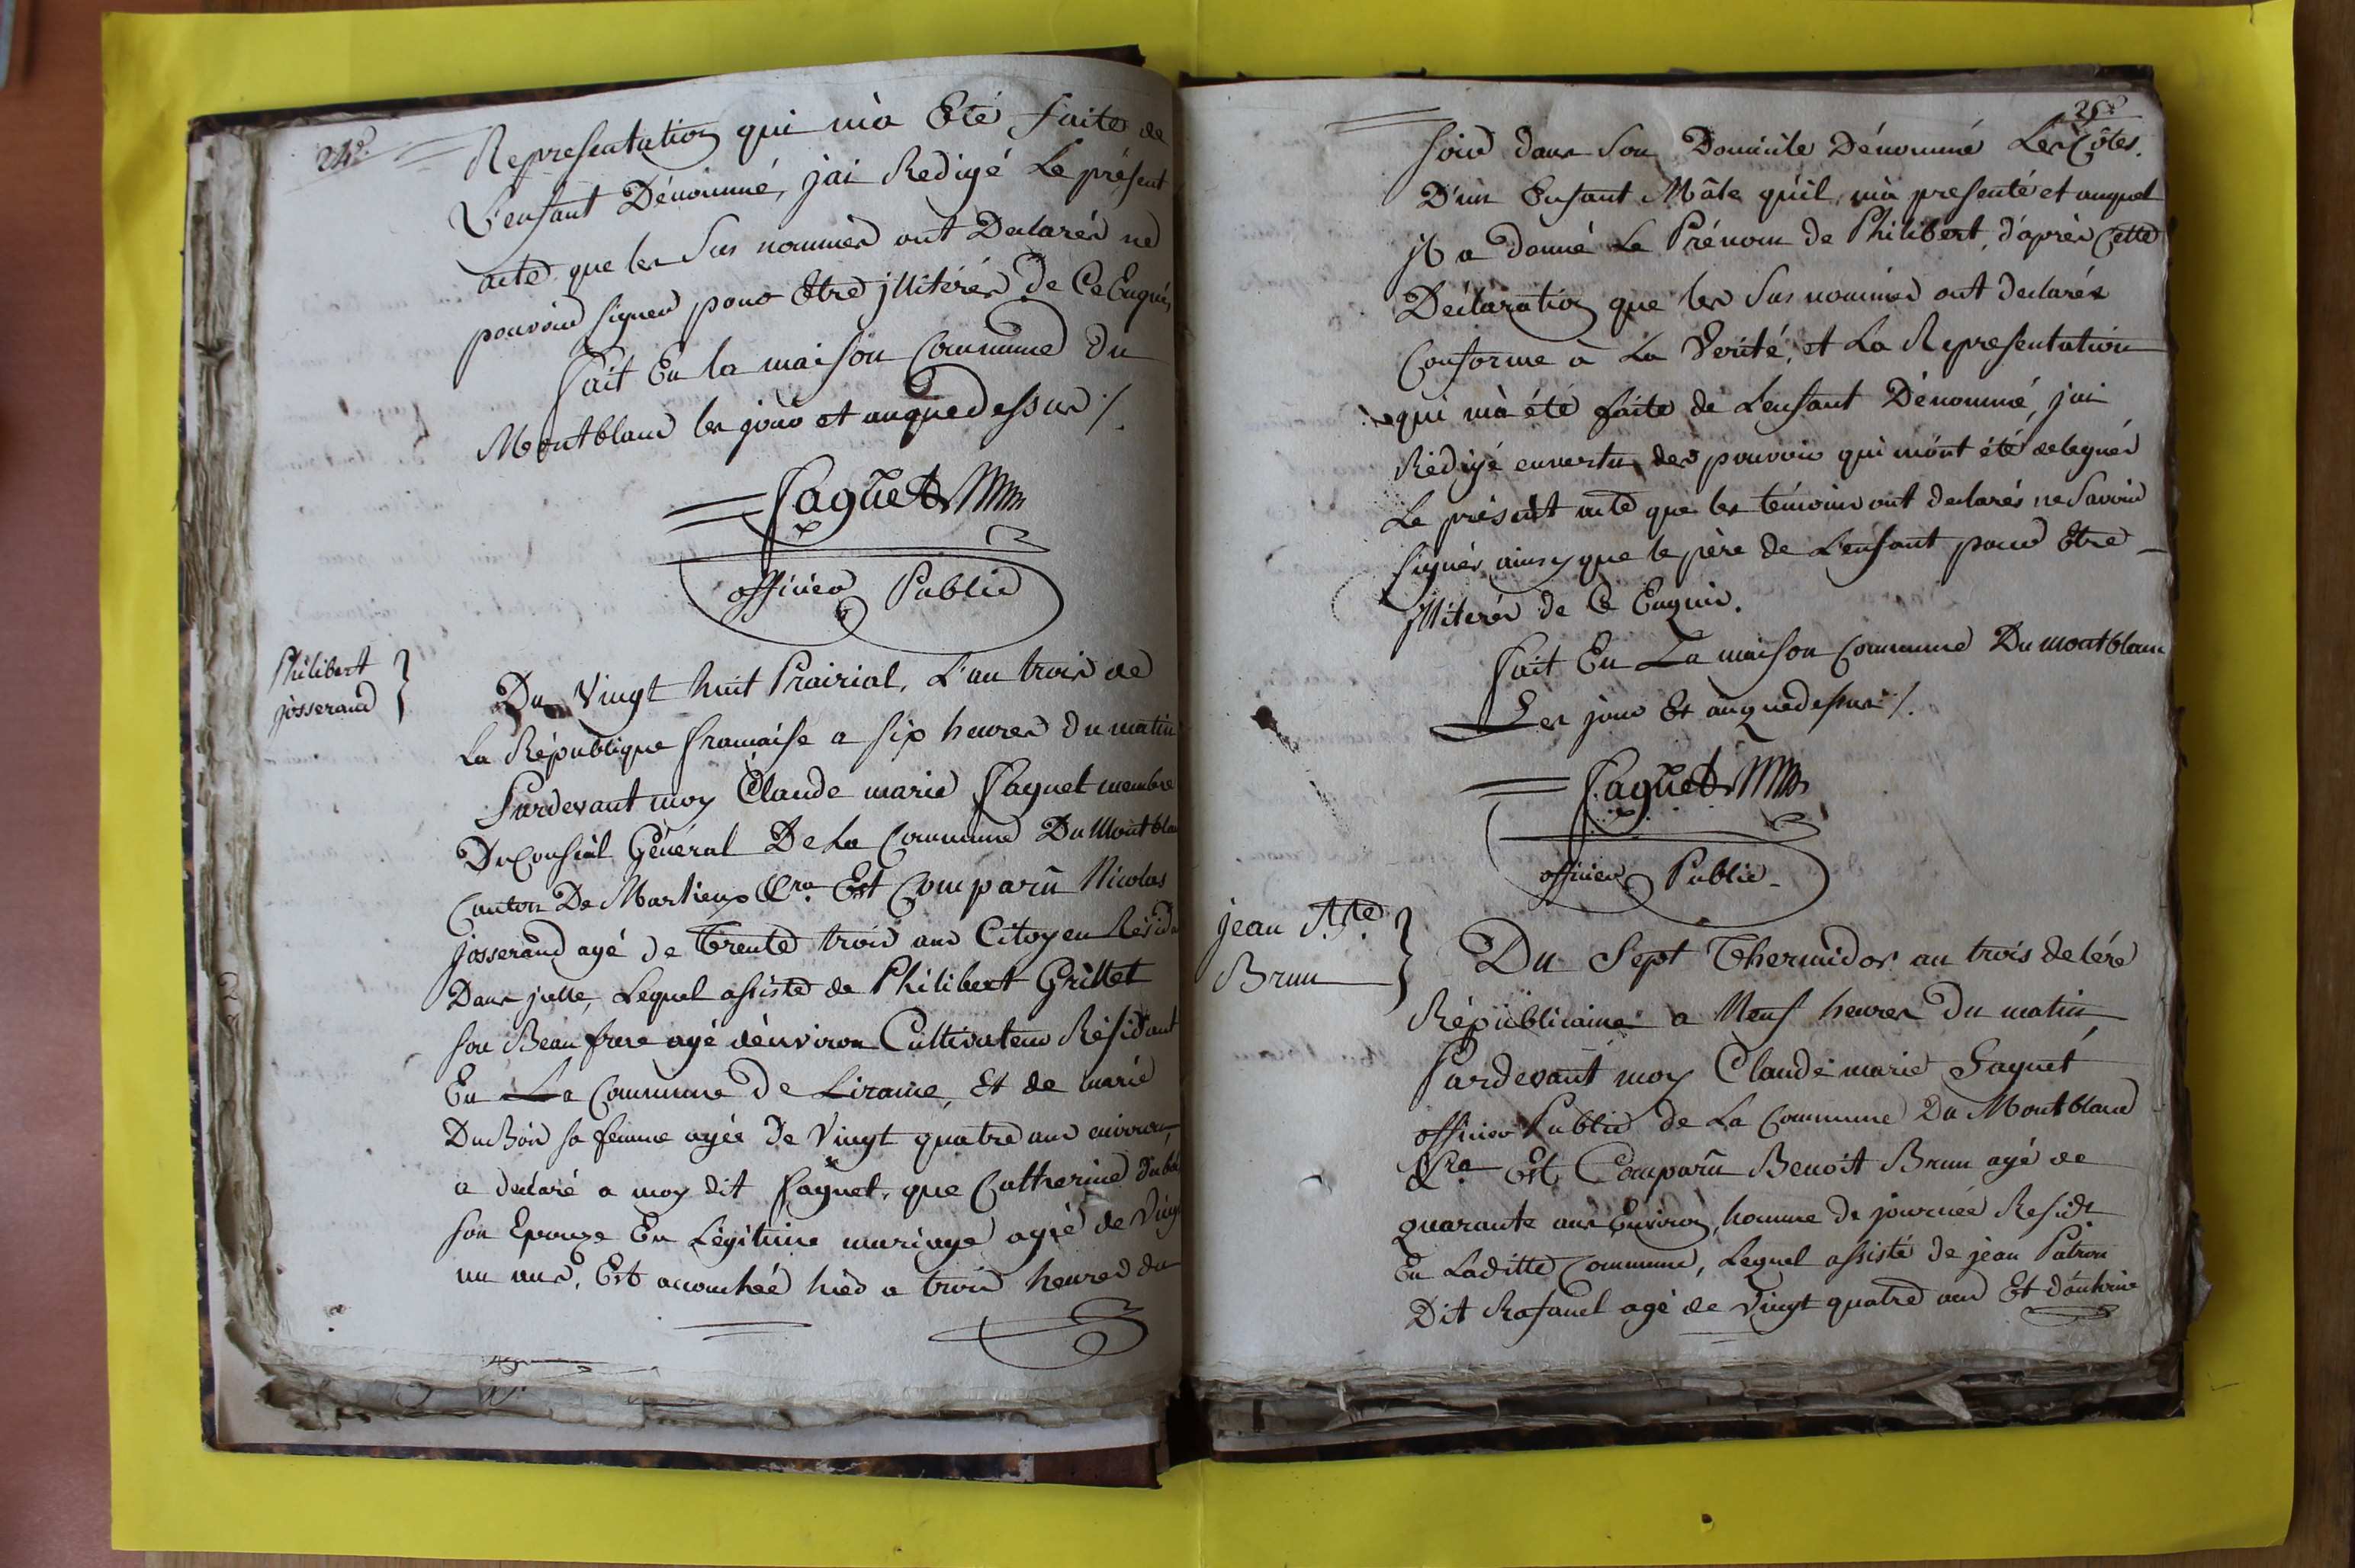 24e.
Representation qui m'a Eté faite de
L'enfant Dénommé, jai Redigé Le présent
acte que les Sus nommés ont Declarés ne
pouvoir signer pour Etre jllitérés de Ce Enquis,
fait En la maison Commune du
Montblanc les jour et anquedessus ·/.
Faguet
officier Public
Philibert
josserand
Du Vingt huit Prairial, L'an trois de
La République francaise a six heures du matin
Pardevant moy Claude marie Faguet membre
Du Conseil Général De La Commune Du Montblanc
Canton De Marlieux &ra. Est Comparû Nicolas
josserand agé de Trente trois ans Citoyen Résid
Dans jcelle, Lequel assisté de Philibert Grillet
son Beau frere agé d'environ Cultivateur Résidant
En La Commune de , Et de marie
DuBois sa femme agée de Vingt quatre ans environ,
a declaré a moy dit Faguet, que Catherine Dubois
son Epouze En Légitime mariage agée de Vingt
un ans, Est accouchée hier a trois heures du
25e.
soir dans son Domicile Dénommé Les Côtes.
D'un Enfant Mâle qu'il m'a presenté et auquel
jl a donné Le Prénom de Philibert, d'après Cette
Déclaration que les Sus nommés ont declarés
Conforme à La Verité, et La Representation
qui m'a été faite de L'enfant Dénommé, jai
Rédigé envertu des pouvoir qui m'ont été delegués
Le présent acte que les témoins ont declarés ne Savoir
signer, ainsy que le père de L'enfant pour Etre
jlliterés de Ce Enquis.
fait En La maison Commune Du montblanc
Les jour Et anquedessus ·/.
Faguet
officier Public
jean B.te
Brun
Du Sept Thermidor an trois de l'ére
Républicaine a Neuf heures Du matin
Pardevant moy Claude marie Faguet
officier Public de La Commune Du Montblanc
&ra Est Comparû Benoit Brun agé de
quarante ans Environ, homme de journée Residt
En Laditte Commune, Lequel assisté de jean Patron
Dit agé de Vingt quatre ans Et d'antoine